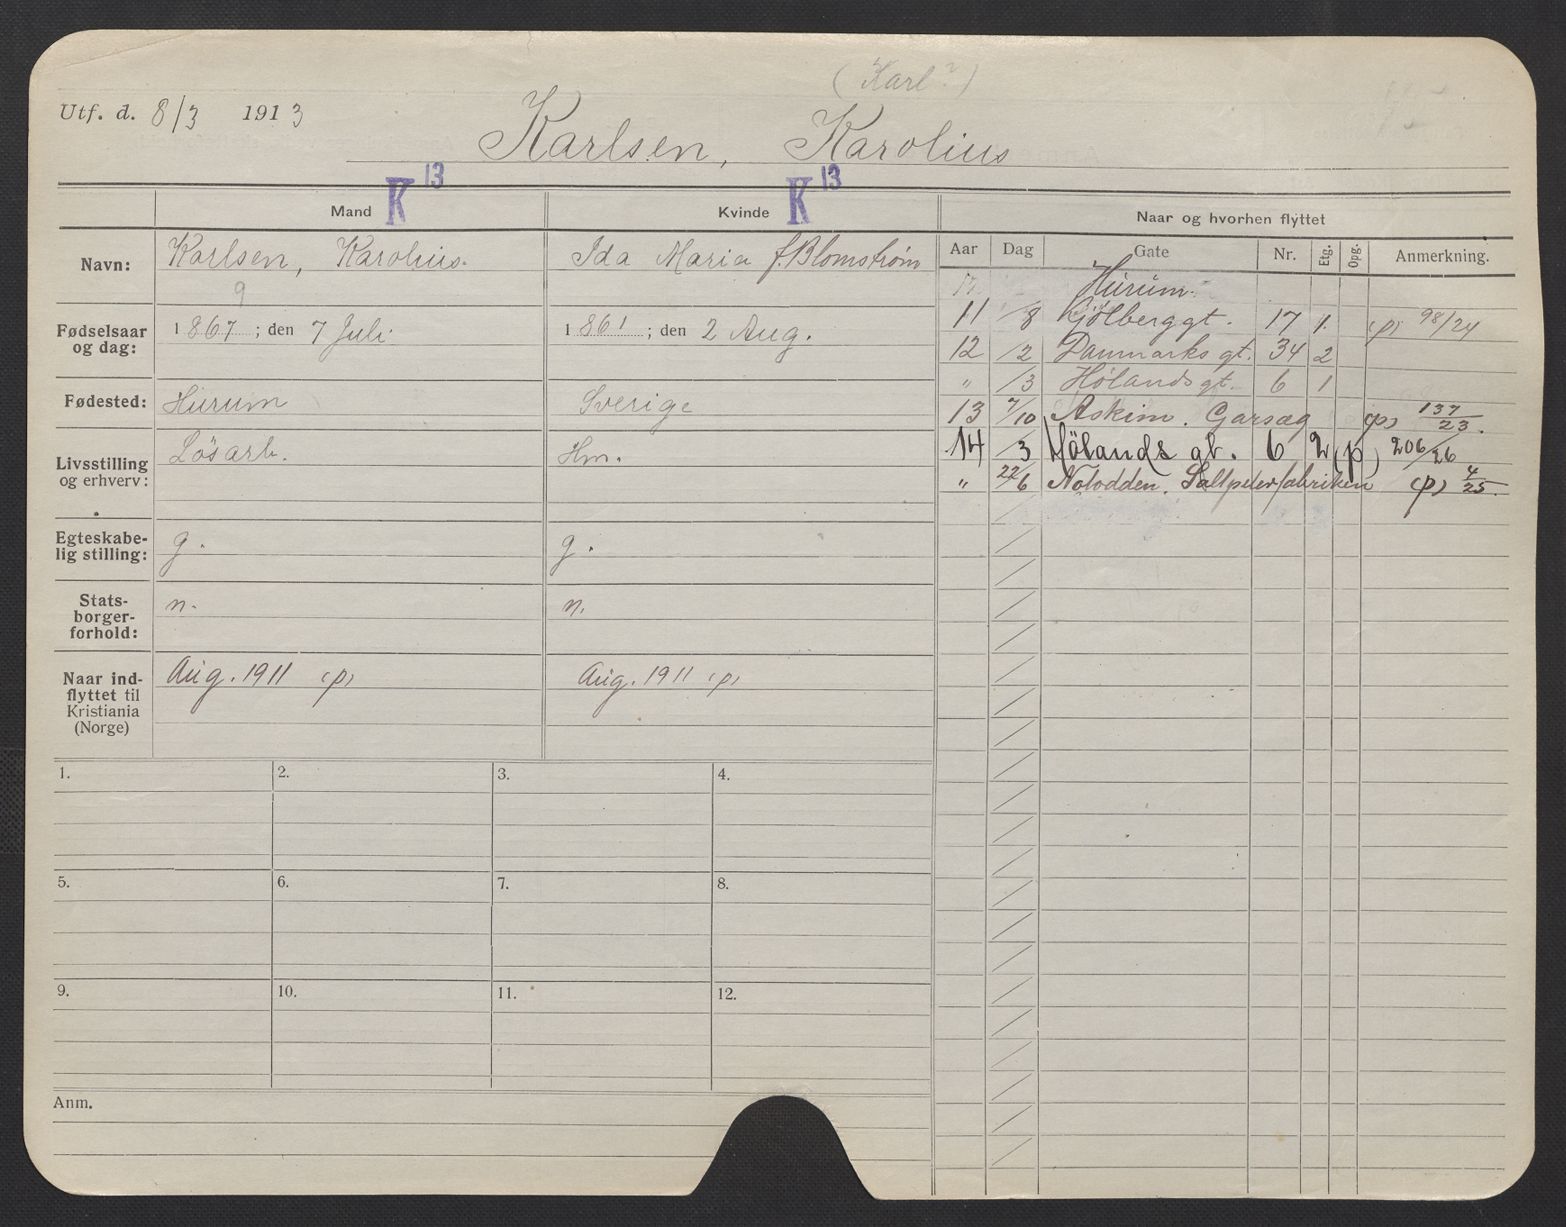 (Karl?)
Utf. d. 8/3 1913
Karlsen, Karolius
Mand K 13 Kvinde K 13 Naar og hvorhen flyttet
Navn: Karlsen, Karolius. Ida Maria f. Blomstrøm
9
Fødselsaar og dag: 1867; den 7 Juli. 1861; den 2 Aug.
Fødested: Hurum Sverige
Livsstilling og erhverv: Lösarb. Hm.
Egteskabe-
lig stilling: g. g.
Stats-
borger-
forhold: n. n.
Naar ind-
flyttet til
Kristiania
(Norge) Aug. 1911 (p) Aug. 1911 (p)
Aar Dag Gate Nr. Etg. Opg. Anmerkning.
Hurum.
11 /8 Gjölberggt. 17 1. (p) 98/24
12 /2 Danmarks gt. 34 2
" /3 Hölandsgt. 6 1
13 7/10 Askim. Garsæg (p) 137/23.
14 /3 Hölands gt. 6 2 (p) 206/26
" 22/6 Notodden. Saltpeterfabriken (p) 4/25.
1. 2. 3. 4.
5. 6. 7. 8.
9. 10. 11. 12.
Anm.